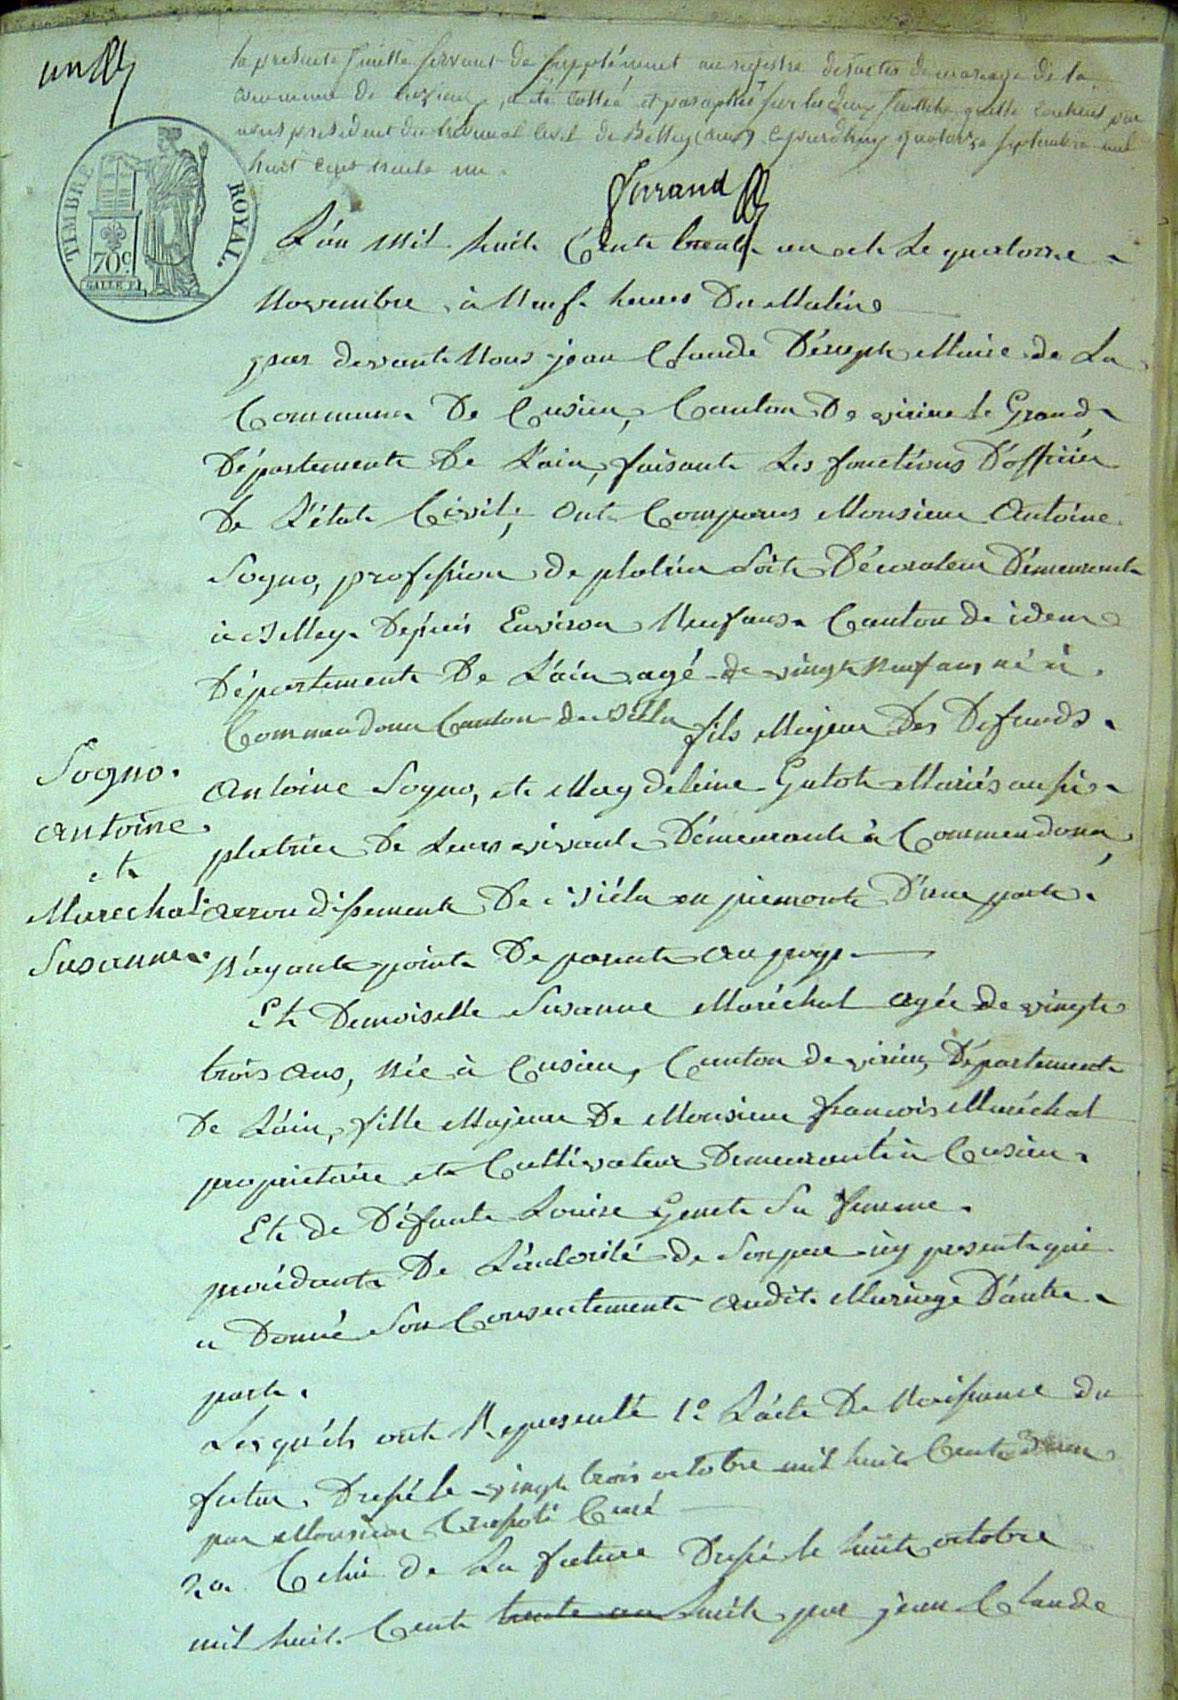 un
la présente feuille servant de supplément au registre des actes de mariage de la
commune de Cuzieu, a été cottée et paraphée sur les deux feuillets qu'elle contient par
nous président du tribunal civil de Belley (ain) cejourd'huy quatorze septembre mil
huit cent trente un.
TIMBRE ROYAL.
70c.
L'an mil huit Cent trente un et le quatorze
Novembre à Neuf heures Du Matin
par devant Nous jean Claude Déseyple Maire de La
Commune De Cusieu, Canton De virieu le Grand
Département De L'ain, faisant Les fonctions D'officier
De L'état Civil, ont Comparus Monsieur Antoine
Sogno, profession de platrier Soit Décorateur Démeurant
à Belley Dépuis Environ Neuf ans Canton de idem
Département De L'ain agé de vingt Neuf ans né à
Commadona Canton de Billa fils Majeur Des Defunds
Antoine Sogno, et Magdeleine Gulot Mariés aussi
platrier De Leur vivant Démeurant à Commendona,
arrondissement De Biéla en piemont D'une part.
N'ayant point De parent au pays
Et Demoiselle Susanne Maréchal agée de vingt
trois ans, Née à Cusieu, Canton de virieu, Département
De L'ain, fille Majeur De Monsieur francois Maréchal
proprietaire et Cultivateur Demeurant à Cusieu.
Et de Défunte Louise Genet Sa femme.
procédante De L'autorité de Son pere icy present qui
a Donné Son Consentement audit Mariage D'autre
part.
Lesquéls ont Representé 1o L'acte De Naissance du
futur Dressé le vingt trois octobre mil huit Cent
par Monsieur Curé
2o Celui de La future Dressé le huit octobre
mil huit Cent trente un huit par jean Claude
Sogno.
Antoine
et
Marechal
Susanne.